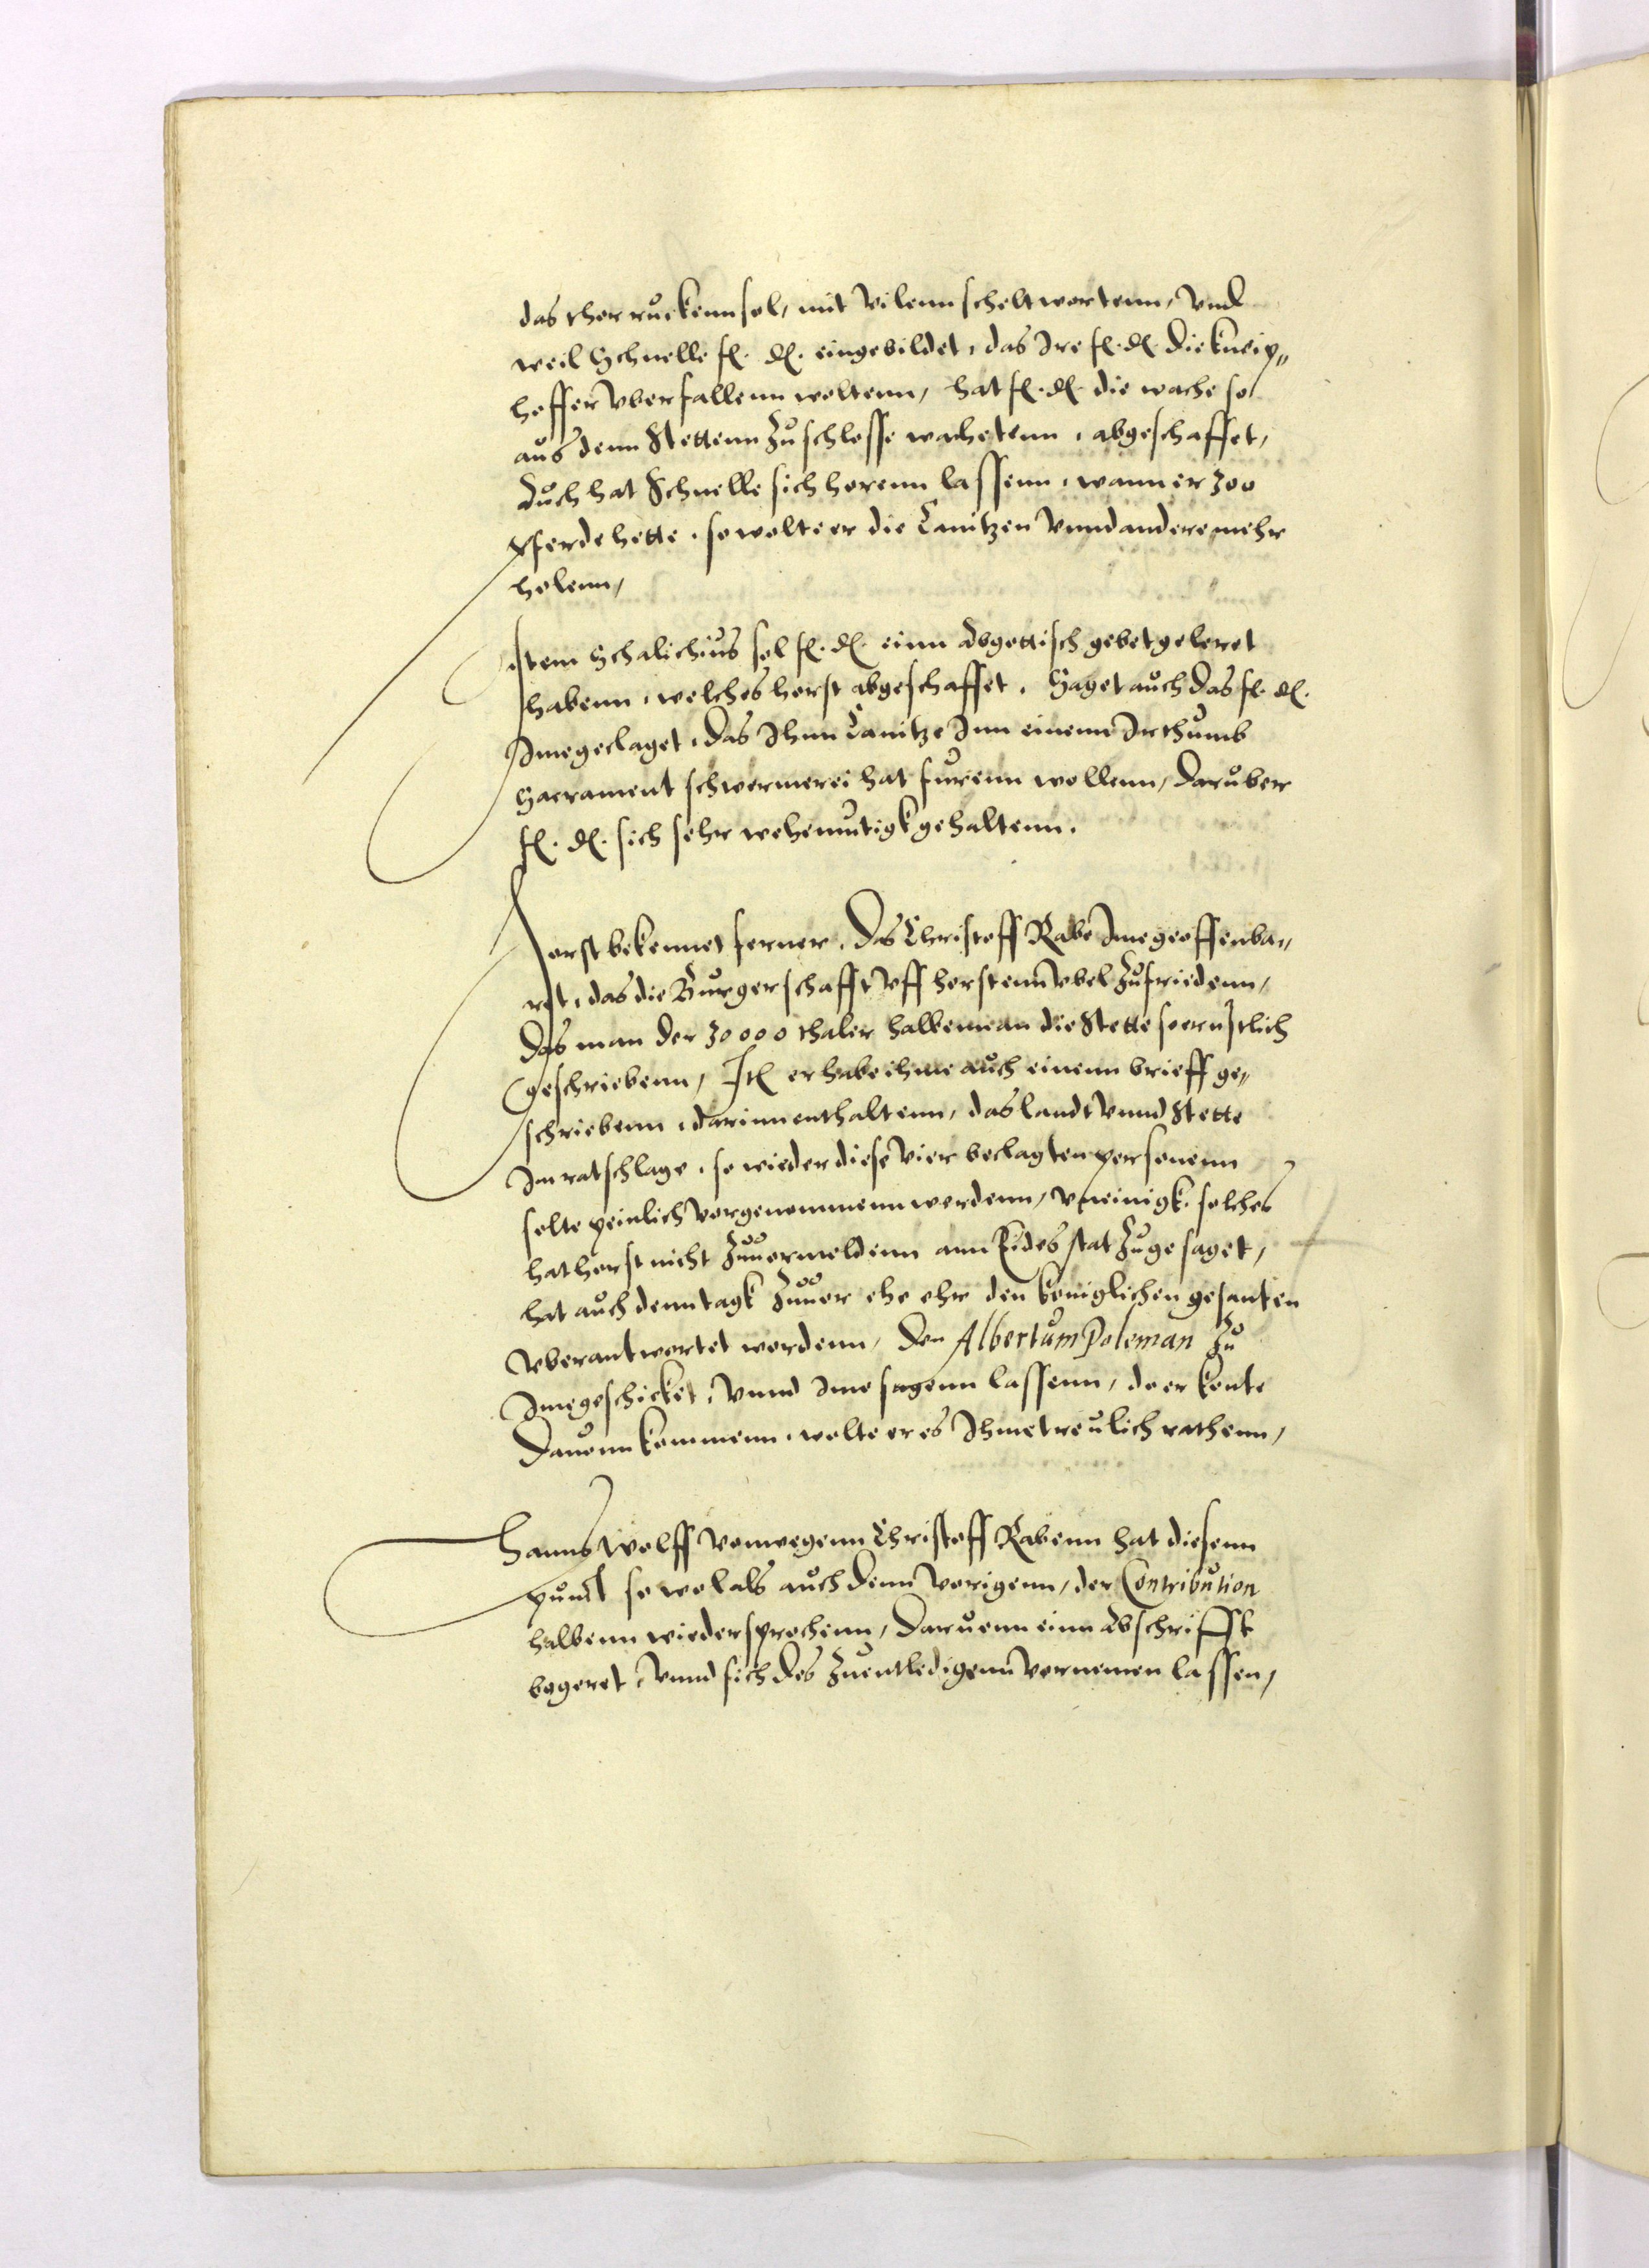 das thor ruckenn sol, mit vilenn scheltwortenn, vnd
weil Schnelle fl. dl. eingebildet, das Jre fl. dl. die kneip„
hoffer vberfallenn woltenn, hat fl. dl. die wache so
aus denn Stettenn zu schlosse wachetenn, abgeschaffet,
Auch hat Schnelle sich horenn lassenn, wann er 300
pferde hette, so wolte er die Canitzen vnnd andere mehr
holenn,
Item Schalichius sol fl. dl. einn abgottisch gebet geleret
habenn, welches horst abgeschaffet. Saget auch das fl. dl.
Jme geclaget, das Jhnn Canitze Jnn einenn Jrthumb
Sacrament schwermerei hat furenn wollenn, daruber
fl. dl. sich sehr wehemutigk gehaltenn.
Horst bekennet ferner, das Christoff Rabe Jme geoffenba„
ret, das die Burgerschafft vff horstenn vbel zufriedenn,
das man der 30000 thaler halbenn an die Stette so ernstlich
geschriebenn, Itl er habe ihme auch einenn brieff ge„
schriebenn, darinn enthaltenn, das landt vnnd Stette
Jm ratschlage, so wieder diese vier beclagten personenn
solte peinlich vorgenommenn werdenn, vneinigk, solches
hat horst nicht zuuormeldenn ann Eides stat zugesaget,
hat auch denn tagk zuuor ehe ehr den koniglichen gesanten
vberantwortet wordenn, den Albertum Poleman zu
Jme geschicket, vnnd Jme sagenn lassenn, do er konte
dauonn kommenn, wolte er es Jhme treulich rathenn,
Hanns Wolff vonwegenn Christoff Rabenn hat diesenn
punct so wol als auch denn vorigenn, der Contribution
halbenn wiedersprochenn, daruonn einn abschrifft
begeret, vnnd sich des zuentledigenn vornemen lassen,